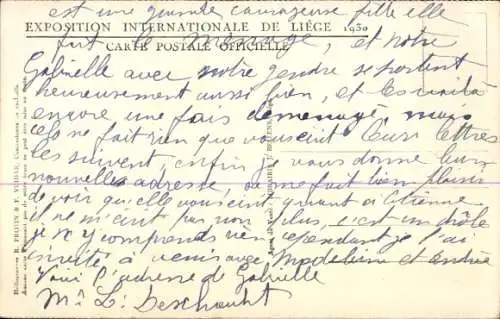 est une grande courageuse fille elle
EXPOSITION INTERNATIONALE DE LIÈGE 1930
fait le ménage, et notre
CARTE POSTALE OFFICIELLE
Gabrielle avec notre gendre se portent
heureusement aussi bien, et les voilà
encore une fois déménagé mais
ça ne fait rien que vous leurs lettres
les suivent, enfin je vous donne leur
nouvelles adresse, ça me fait bien plaisir
de voir qu'elle vous écrit quant à Etienne
il ne m'écrit pas non plus, c'est un drôle
je n'y comprends rien, cependant je l'ai
invité à venir avec Madeleine et Andrée
Voici l'adresse de Gabrielle
Mr L. Deschault